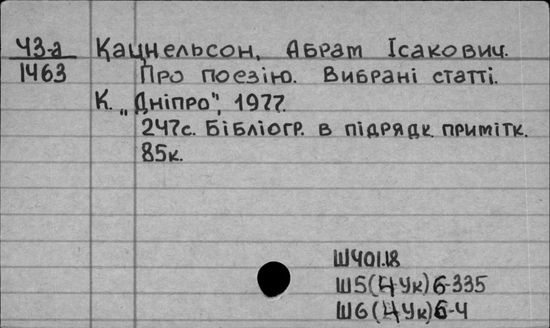 ЧЗ-а Кацнельсон, Абрам Ісакович.
1463 Про поезію. Вибрані статті.
К. „Дніпро", 1977.
247с. Бібліогр. в підрядк. примітк.
85к.
Ш401.18
Ш5(4Ук)6-335
Ш6(4Ук)6-4